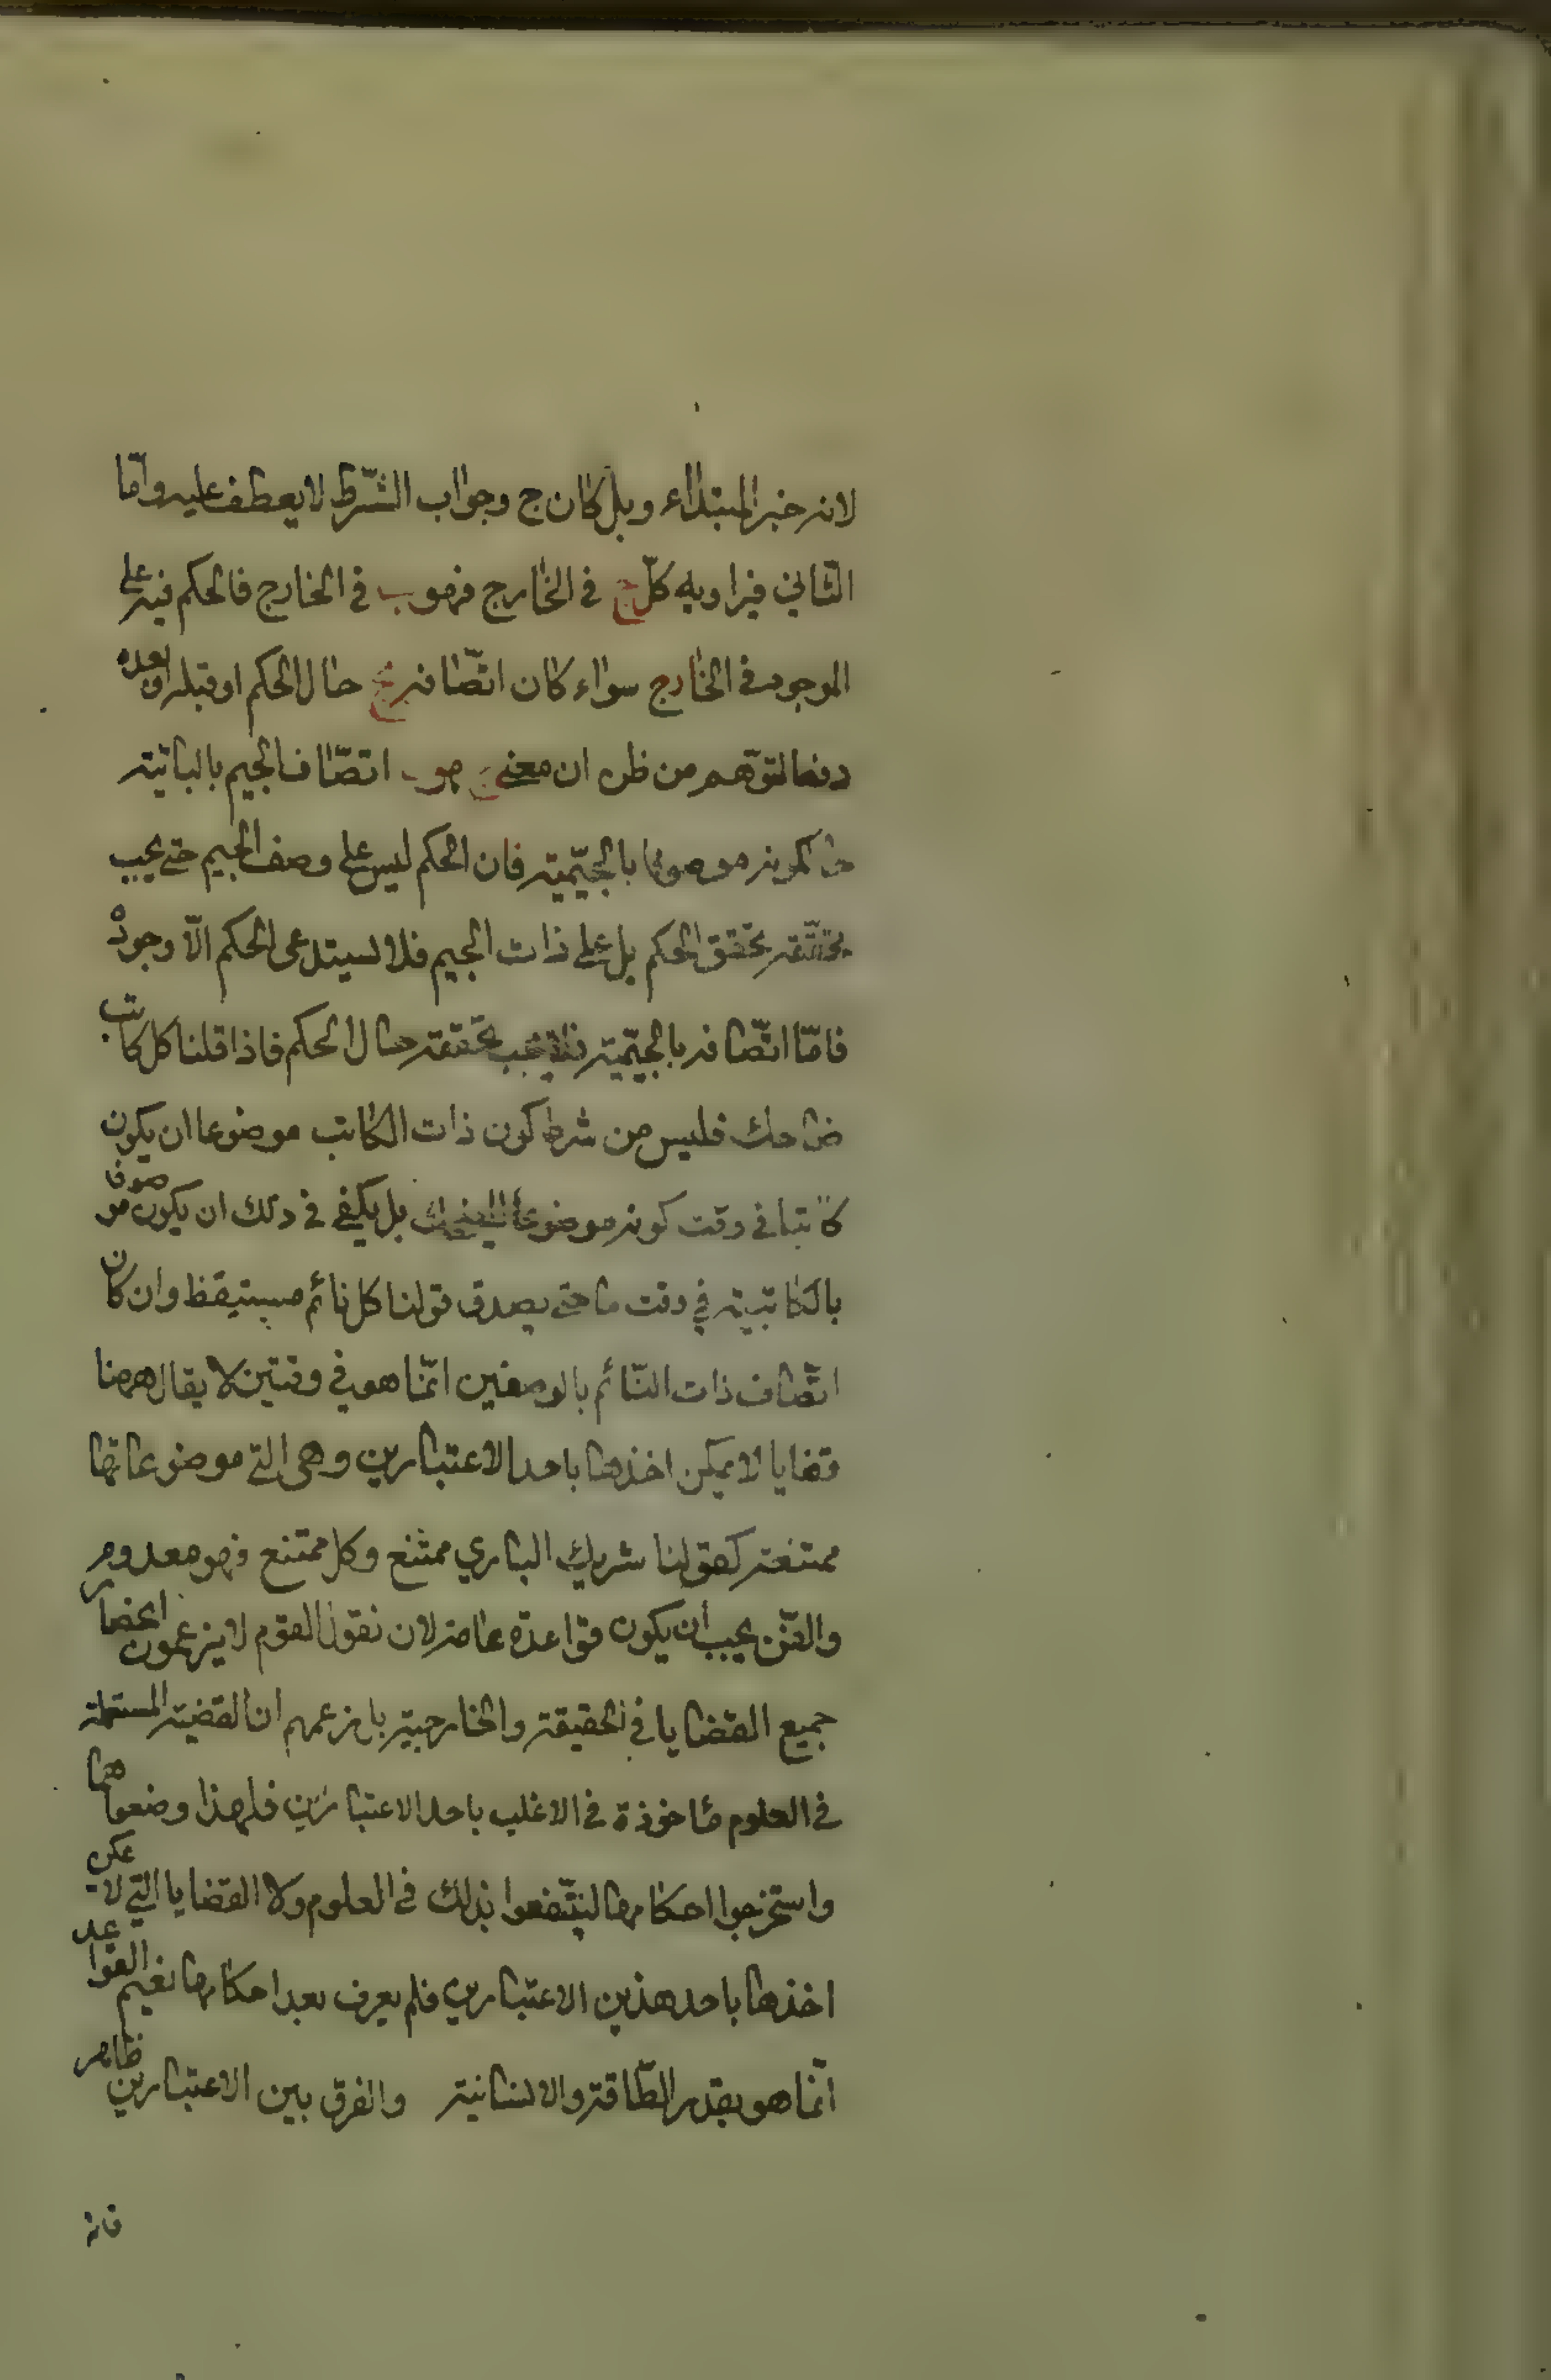 لانه خبر المبتداء وبل كان ج وجواب الشّرط لا يعطف عليه وامّا
الثّاني فيراد به كلّ ج في الخارج فهو ب في الخارج فالحكم فيه على
الموجود في الخارج سواء كان اتّصافه بج حال الحكم او قبله او بعده
دفعا لتوّهم من ظن ان معنى ج هو ب اتصّاف الجيم بالبائيّة
حال كونه موصوفا بالجيّمية فان الحكم ليس على وصف الجيم حتى يجب
تحقّقه تحقق الحكم بل على ذات الجيم فلا يستدعى الحكم الّا وجوده
فامّا اتّصافه بالجيّمية فلا يجب تحقّقه حال الحكم فاذا قلنا كل كاتب
ضاحك فليس من شرط كون ذات الكاتب موضوعا ان يكون
كاتبا في وقت كونه موضوعا للضحك بل يكفي في ذلك ان يكون موصوفا
بالكاتبية في وقت ما حتى يصدق قولنا كل نائم مستيقظ وان كان
اتّصاف ذات النّائم بالوصفين انّما هو في وقتين لا يقال ههنا
قضايا لا يمكن اخذها باحد الاعتبارين وهي التي موضوعاتها
ممتنعة كقولنا شريك الباري ممتنع وكل ممتنع فهو معدوم
والفّن يجب أن يكون قواعده عامة لان نقول القوم لا يزعمون انحصار
جميع القضايا في الحقيقة والخارجية بل زعمهم ان القضية المستعملة
في العلوم مأخوذة في الاغلب باحد الاعتبارين فلهذا وضعوا هما
واستخرجوا احكامها لينتّفعوا بذلك في العلوم ولا القضايا التي لا يمكن
اخذها باحد هذين الاعتبارين فلم يعرف بعد احكامها تعيم القواعد
انّما هو بقدر الطّاقة والانسانية والفرق بين الاعتبارين ظاهر
فانه